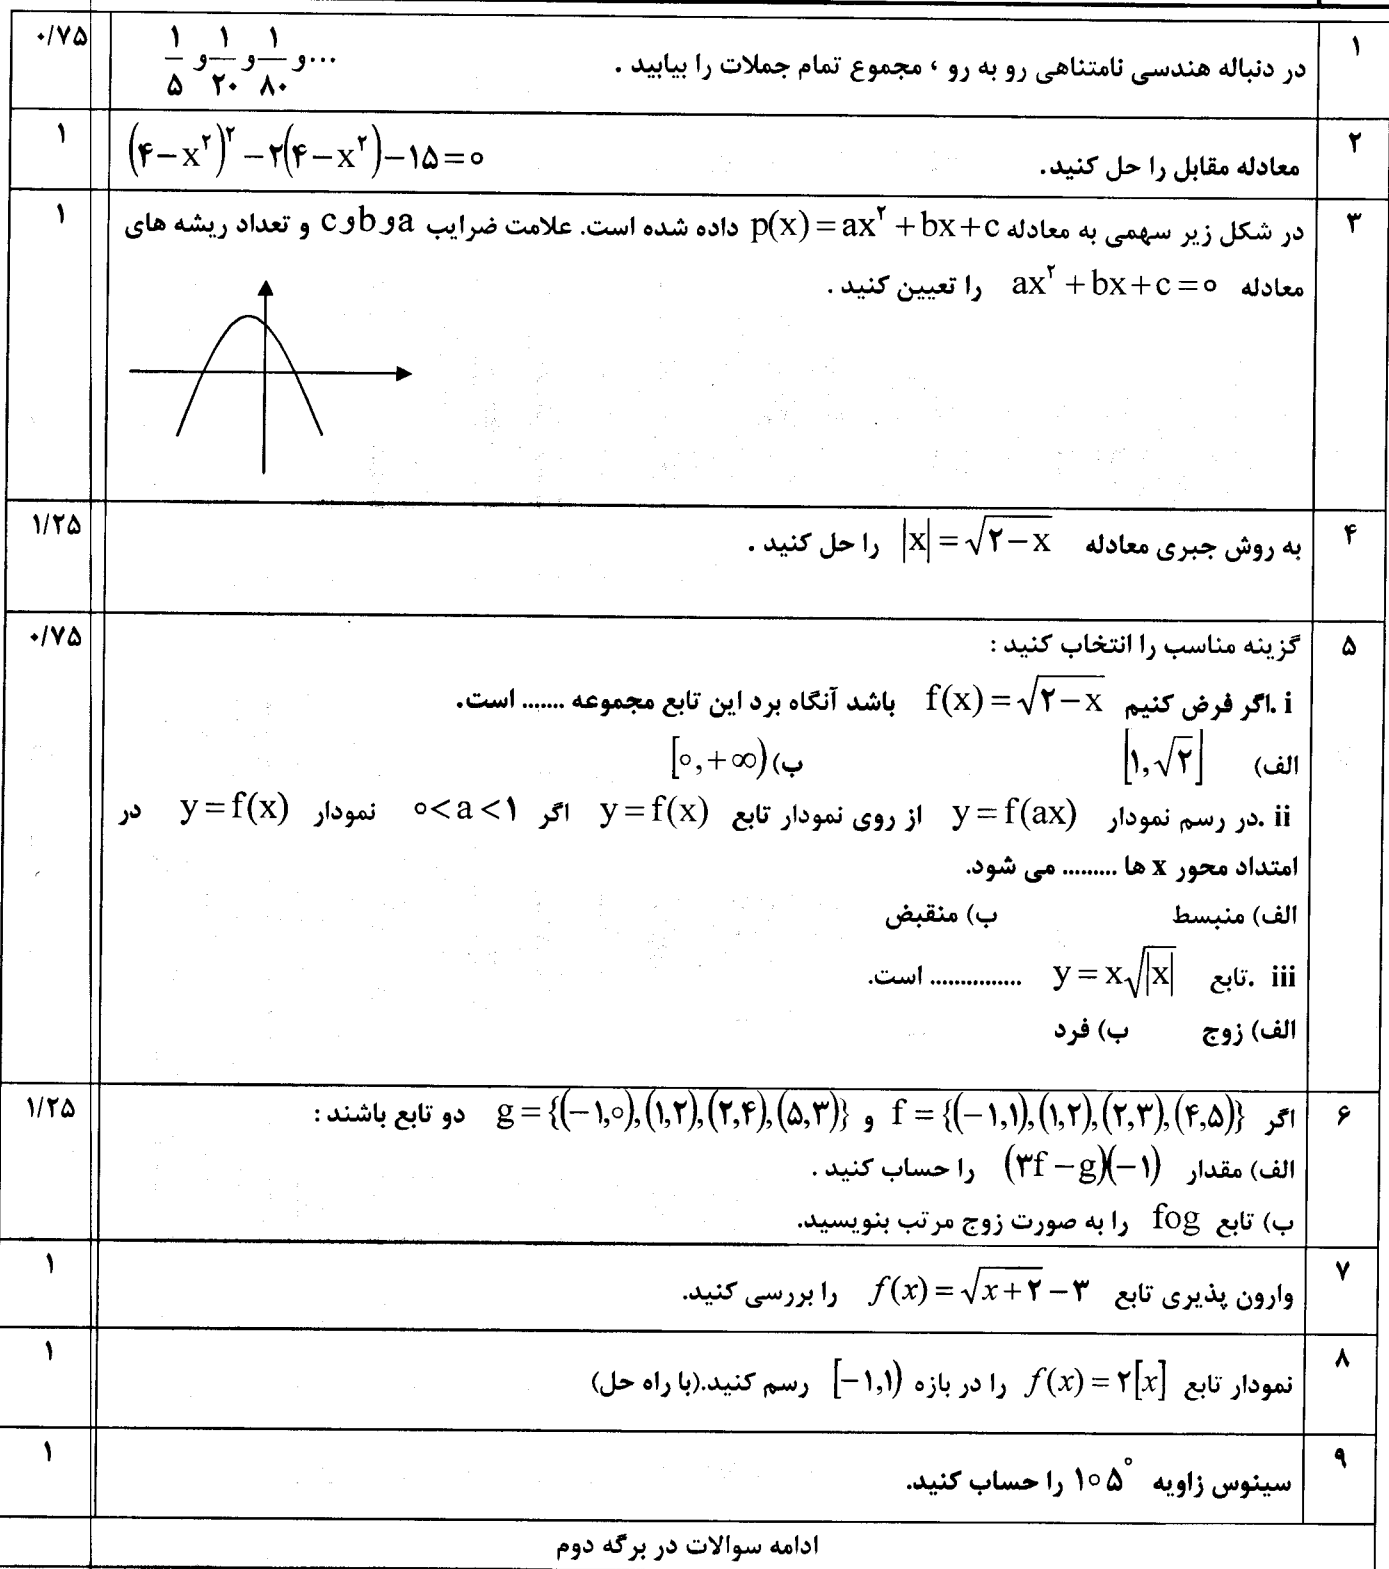 ۱ در دنباله هندسی نامتناهی رو به رو ، مجموع تمام جملات را بیابید . ۱/۵ و ۱/۲۰ و ۱/۸۰ و... ۰/۷۵
۲ معادله مقابل را حل کنید. (۴−x²)² −۲(۴−x²)−۱۵=۰ ۱
۳ در شکل زیر سهمی به معادله p(x)=ax²+bx+c داده شده است. علامت ضرایب a و b و c و تعداد ریشه های ۱
معادله ax²+bx+c=۰ را تعیین کنید .
۴ به روش جبری معادله |x|=√(۲−x) را حل کنید . ۱/۲۵
۵ گزینه مناسب را انتخاب کنید : ۰/۷۵
i .اگر فرض کنیم f(x)=√(۲−x) باشد آنگاه برد این تابع مجموعه ....... است.
الف) [۱,√۲] ب) [۰,+∞)
ii .در رسم نمودار y=f(ax) از روی نمودار تابع y=f(x) اگر ۰<a<۱ نمودار y=f(x) در
امتداد محور x ها ......... می شود.
الف) منبسط ب) منقبض
iii .تابع y=x√|x| ............... است.
الف) زوج ب) فرد
۶ اگر f={(−۱,۱),(۱,۲),(۲,۳),(۴,۵)} و g={(−۱,۰),(۱,۲),(۲,۴),(۵,۳)} دو تابع باشند : ۱/۲۵
الف) مقدار (۳f−g)(−۱) را حساب کنید .
ب) تابع fog را به صورت زوج مرتب بنویسید.
۷ وارون پذیری تابع f(x)=√(x+۲)−۳ را بررسی کنید. ۱
۸ نمودار تابع f(x)=۲[x] را در بازه [−۱,۱) رسم کنید.(با راه حل) ۱
۹ سینوس زاویه ۱۰۵° را حساب کنید. ۱
ادامه سوالات در برگه دوم